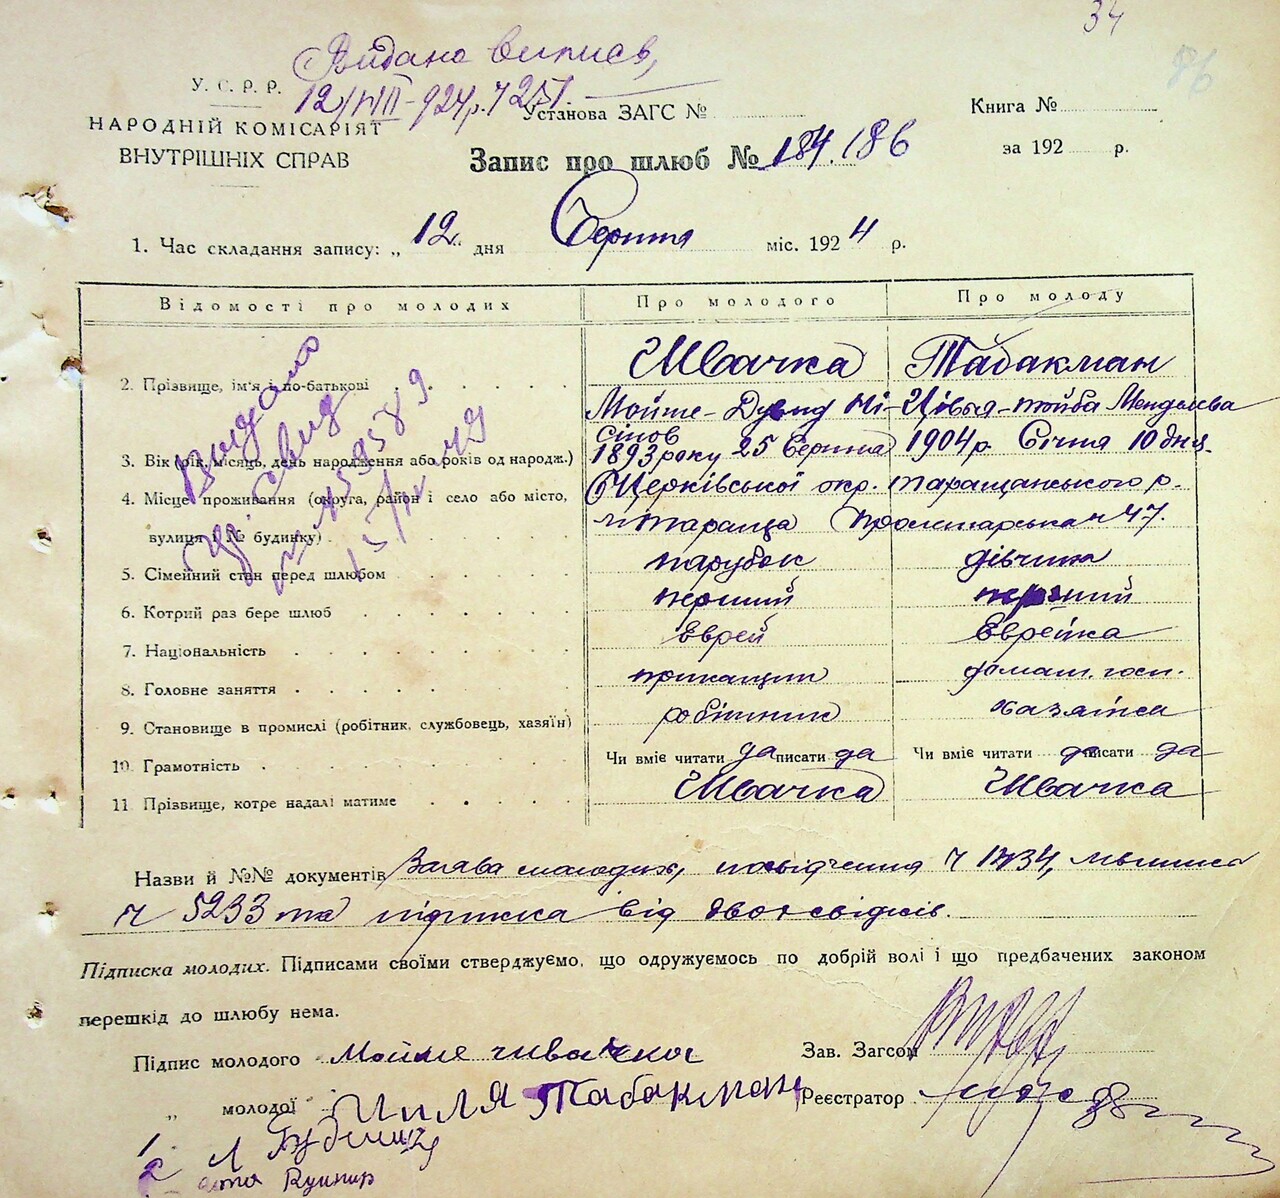 34
86
Видано випись,
12/VIII-924р. Ч 251.
У. С. Р. Р.
НАРОДНІЙ КОМІСАРІЯТ
ВНУТРІШНІХ СПРАВ
Установа ЗАГС №
Книга №
за 192 р.
Запис про шлюб № 184. 186
1. Час складання запису: „ 12 " дня Серпня міс. 1924 р.
Відомості про молодих Про молодого Про молоду
2. Прізвище, ім'я і по-батькові Швачка Табакман
Мойше-Дувид Ні- Цівья-тойба Менделева
сінов
3. Вік (рік, місяць, день народження або років од народж.) 1893 року 25 Серпня 1904 р Січня 10 дня.
4. Місце проживання (округа, район і село або місто, Б/Церківської окр. таращанського р.
вулиця і № будинку) м Тараща Пролетарська н 47.
5. Сімейний стан перед шлюбом парубок дівчина
6. Котрий раз бере шлюб перший перший
7. Національність Єврей Єврейка
8. Головне заняття прикащик домаш. госп.
9. Становище в промислі (робітник, службовець, хазяїн) робітник хазяйка
10. Грамотність Чи вміє читати да писати да Чи вміє читати да писати да
11 Прізвище, котре надалі матиме Швачка Швачка
Видано
свид
13/IV 49
Назви й №№ документів Заява молодих, посвідчення Ч 1734,
Ч 5233 та підписка від двох свідків.
Підписка молодих. Підписами своїми стверджуємо, що одружуємось по добрій волі і що предбачених законом
перешкід до шлюбу нема.
Підпис молодого Мойше Швачка Зав. Загсом
„ молодої Циля Табакман Реєстратор
1.
2